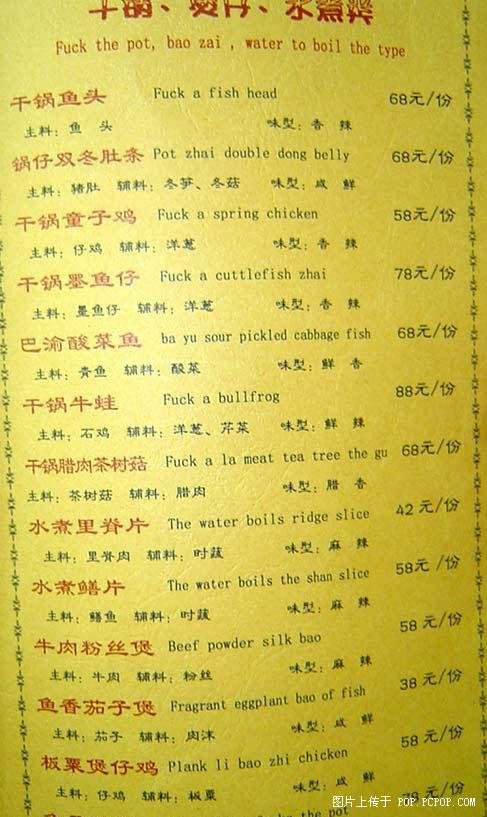 干锅、煲仔、水煮类
Fuck the pot, bao zai , water to boil the type
干锅鱼头 Fuck a fish head 68元/份
主料：鱼 头 味型：香 辣
锅仔双冬肚条 Pot zhai double dong belly 68元/份
主料：猪肚 辅料：冬笋、冬菇 味型：咸 鲜
干锅童子鸡 Fuck a spring chicken 58元/份
主料：仔鸡 辅料：洋葱 味型：香 辣
干锅墨鱼仔 Fuck a cuttlefish zhai 78元/份
主料：墨鱼仔 辅料：洋葱 味型：香 辣
巴渝酸菜鱼 ba yu sour pickled cabbage fish 68元/份
主料：青鱼 辅料：酸菜 味型：鲜 香
干锅牛蛙 Fuck a bullfrog 88元/份
主料：石鸡 辅料：洋葱、芹菜 味型：鲜 辣
干锅腊肉茶树菇 Fuck a la meat tea tree the gu 68元/份
主料：茶树菇 辅料：腊肉 味型：腊 香
水煮里脊片 The water boils ridge slice 42元/份
主料：里脊肉 辅料：时蔬 味型：麻 辣
水煮鳝片 The water boils the shan slice 58元/份
主料：鳝鱼 辅料：时蔬 味型：麻 辣
牛肉粉丝煲 Beef powder silk bao 58元/份
主料：牛肉 辅料：粉丝 味型：麻 辣
鱼香茄子煲 Fragrant eggplant bao of fish 38元/份
主料：茄子 辅料：肉沫 味型：咸 鲜
板粟煲仔鸡 Plank li bao zhi chicken 58元/份
主料：仔鸡 辅料：板粟 味型：咸 鲜
the pot 78元/份
图片上传于 POP.PCPOP.COM